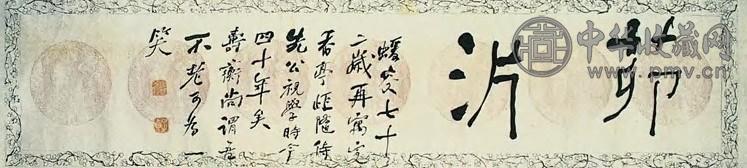 茆
沜
蝯叟七十
二歲再寓定
香亭距隨侍
先公視學時今
四十年矣
壽蘅尚謂吾
不老可發一
笑
中华收藏网
www.pmv.cn